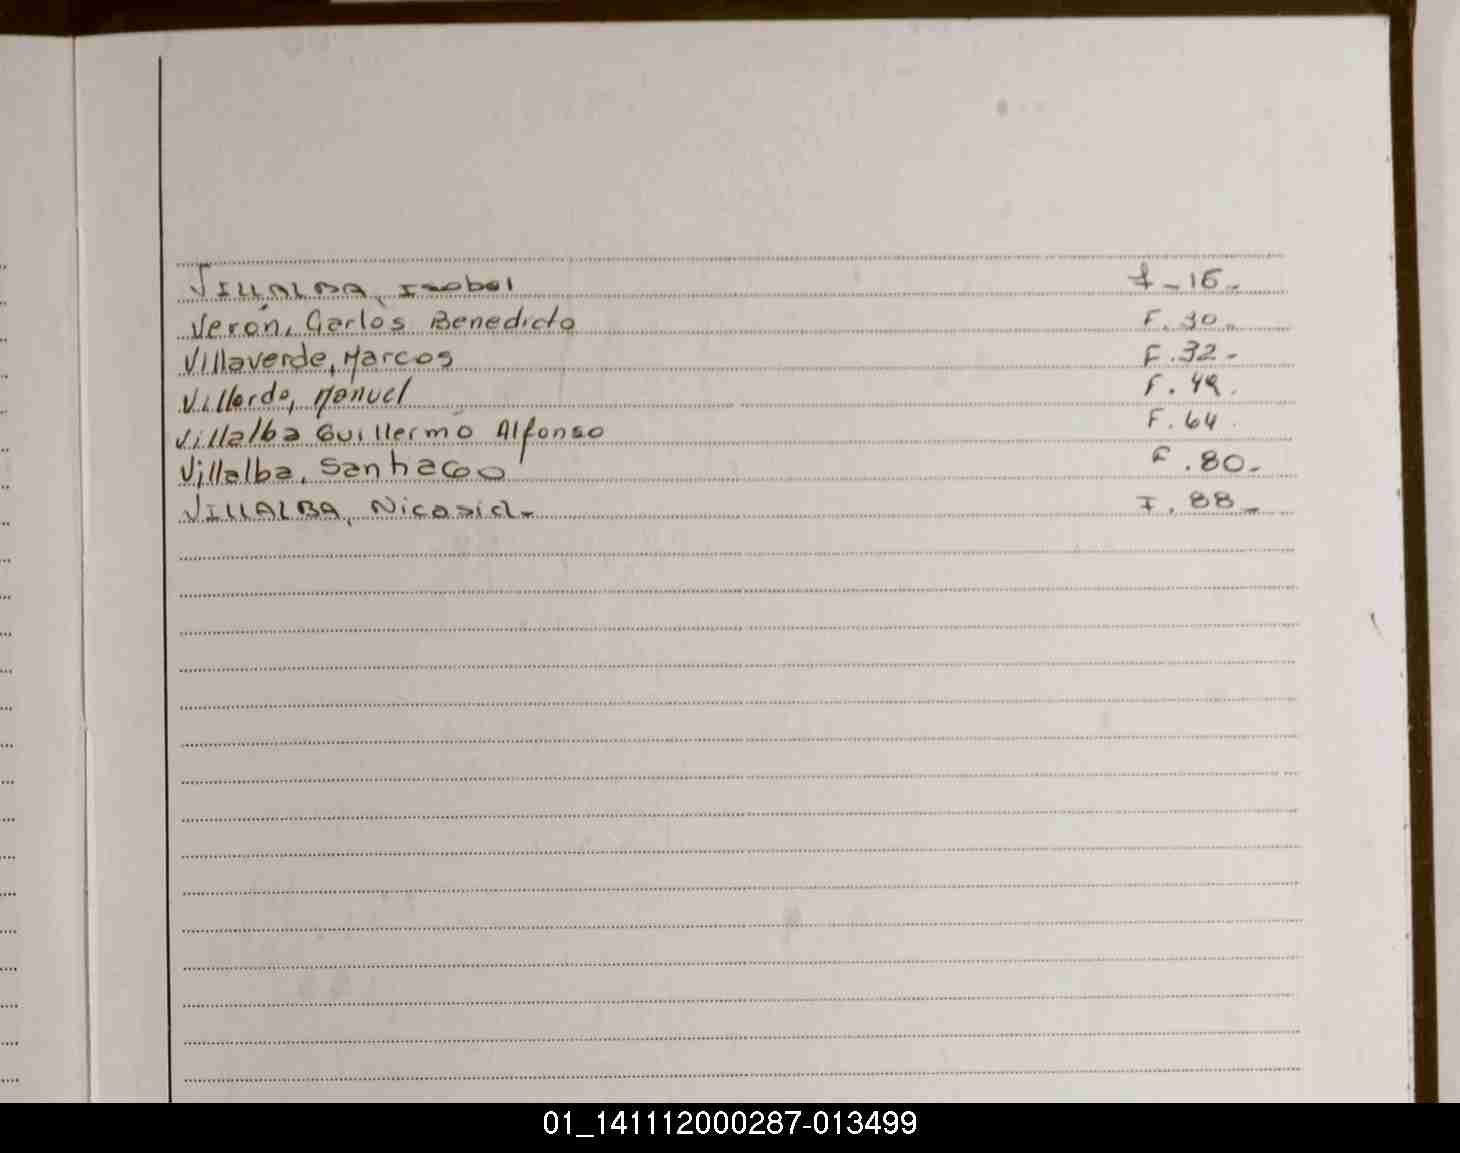 VILLALBA, Isabel F - 16 -
Verón, Carlos Benedicto F. 30 -
Villaverde, Marcos F. 32 -
Villordo, Manuel F. 49.
Villalba Guillermo Alfonso F. 64.
Villalba, Santiago F. 80 -
VILLALBA, Nicasia - F. 88 -
01_141112000287-013499